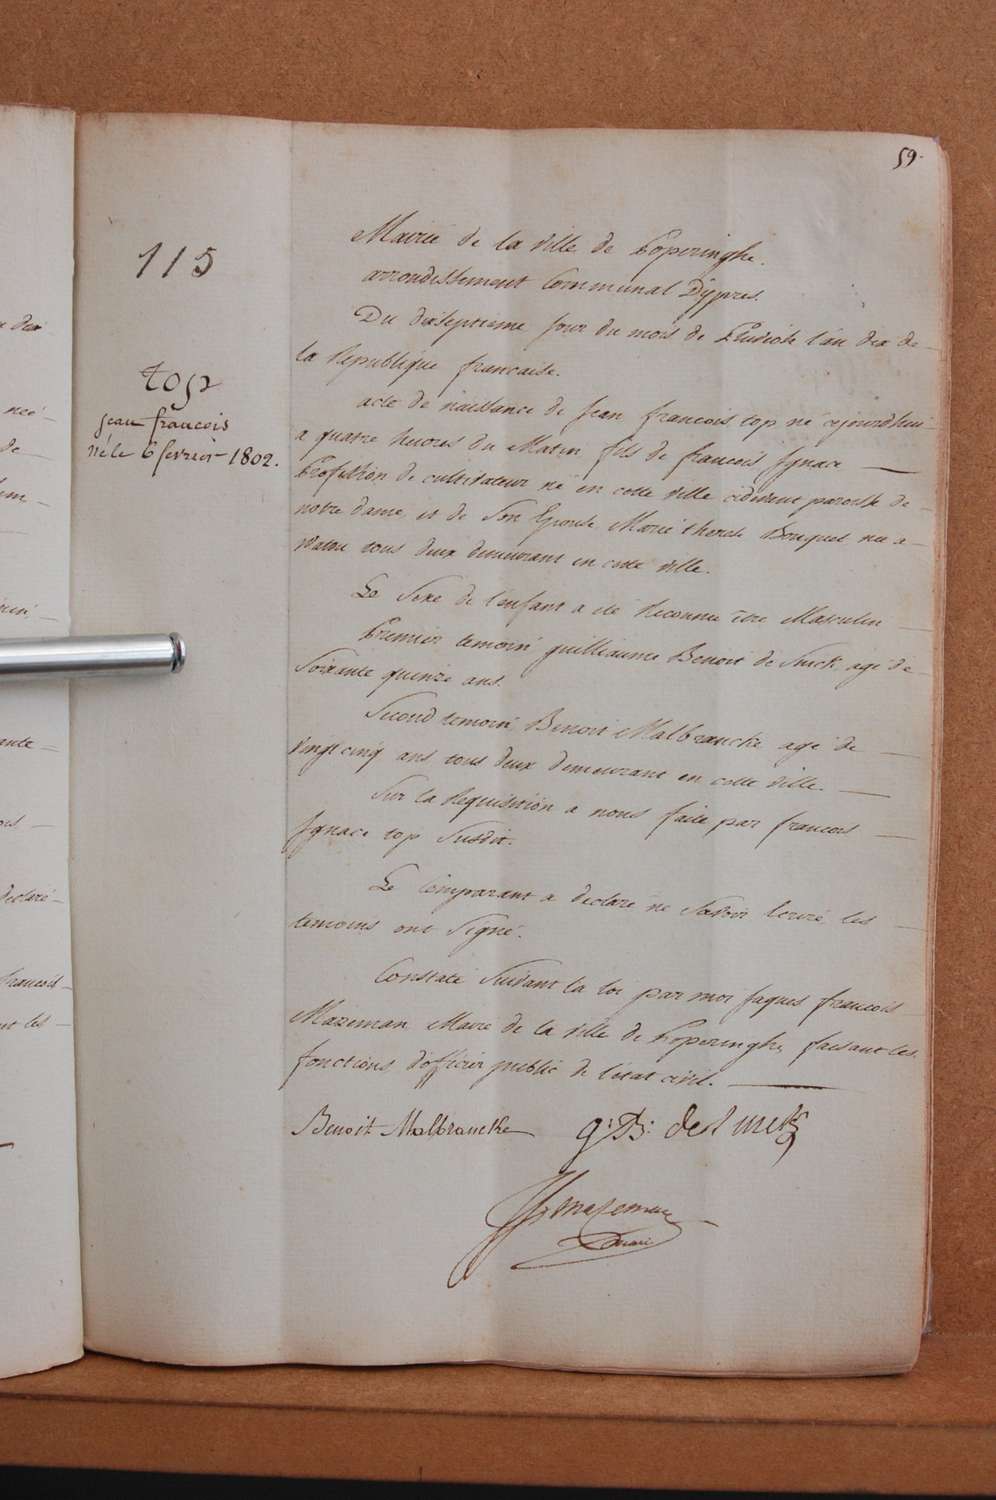 59.
115
top
jean francois
né le 6 fevrier 1802.
Mairie de la ville de Poperinghe.
arrondissement Communal Dÿpres.
Du dixseptieme jour du mois de Pluviose l'an dix de
la Republique francaise.
acte de naissance de Jean francois top né cejourdhui
a quatre heures du Matin fils de francois Ignace
Profession de cultivateur né en cette ville cidevant paroisse de
notre dame, et de Son Epouse Marie therese Bouquet nee a
Watou tous deux demeurant en cette ville.
Le Sexe de l'enfant a été Reconnu être Masculin
Premier temoin guilliaume Benoit de Smck agé de
Soixante quinze ans.
Second temoin Benoit Malbrancke agé de
vingt cinq ans tous deux demeurant en cette ville.
Sur la Requisition a nous faite par francois
Ignace top Susdit.
Le Comparant a declaré ne Savoir Ecrire, les
temoins ont Signé.
Constaté Suivant la loi par moi Jaques francois
Mazeman Maire de la ville de Poperinghe, faisant les
fonctions d'officier public de l'état civil.
Benoit Malbrancke
g: B:
Mazeman
maire
né
de
ante
declaré
francois
nt les